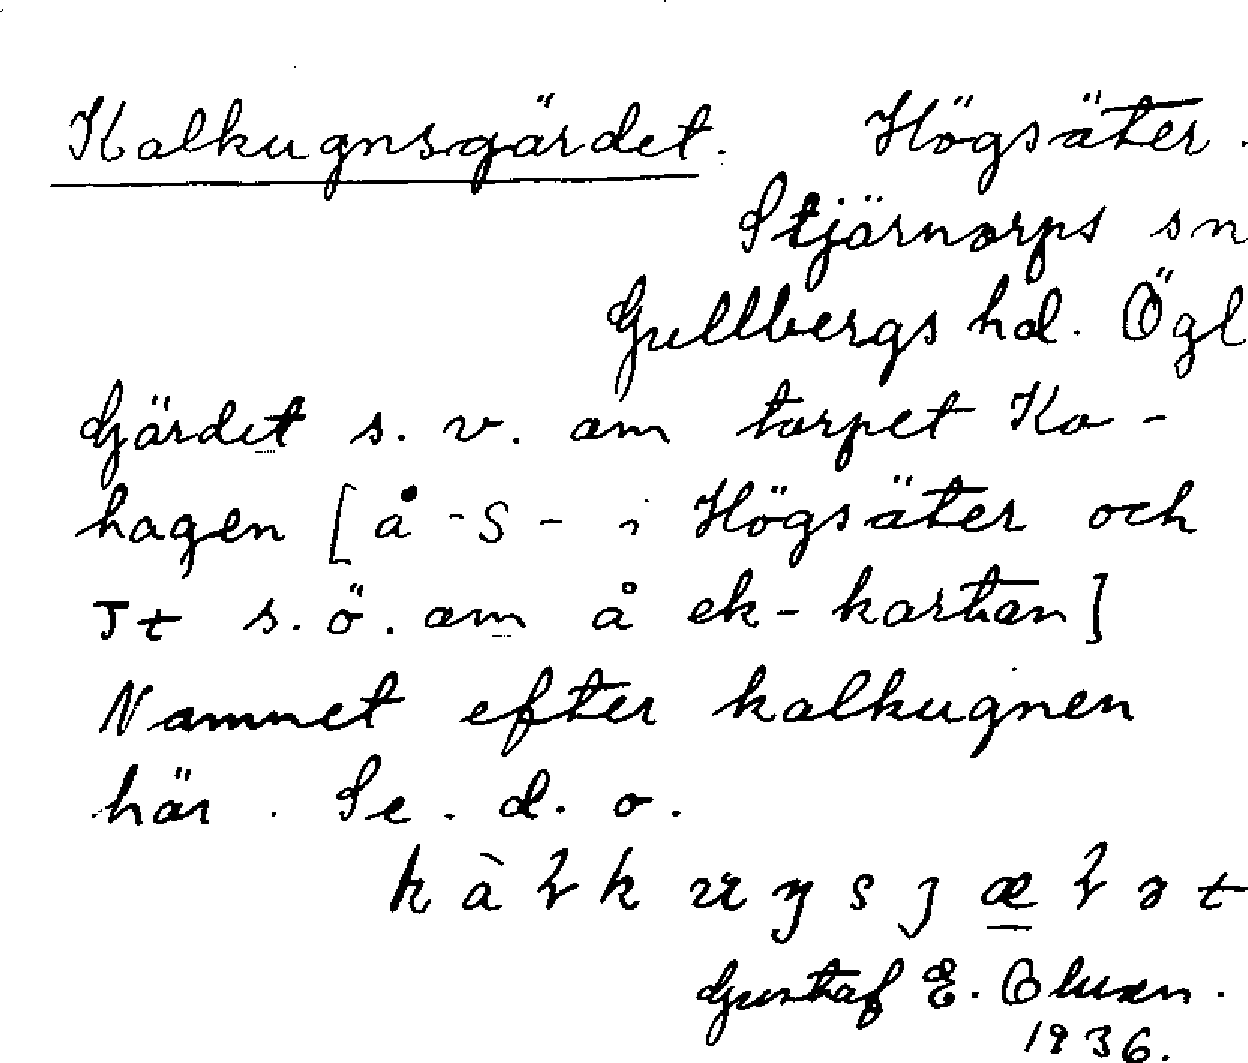 Kalkugnsgärdet. Högsäter.
Stjärnorps sn
Gullbergs hd. Ögl
Gärdet s. v. om torpet Ko-
hagen [å -S- i Högsäter och
It s. ö. om å ek-kartan]
Namnet efter kalkugnen
här. Se. d. o.
Gustaf E.
1936.